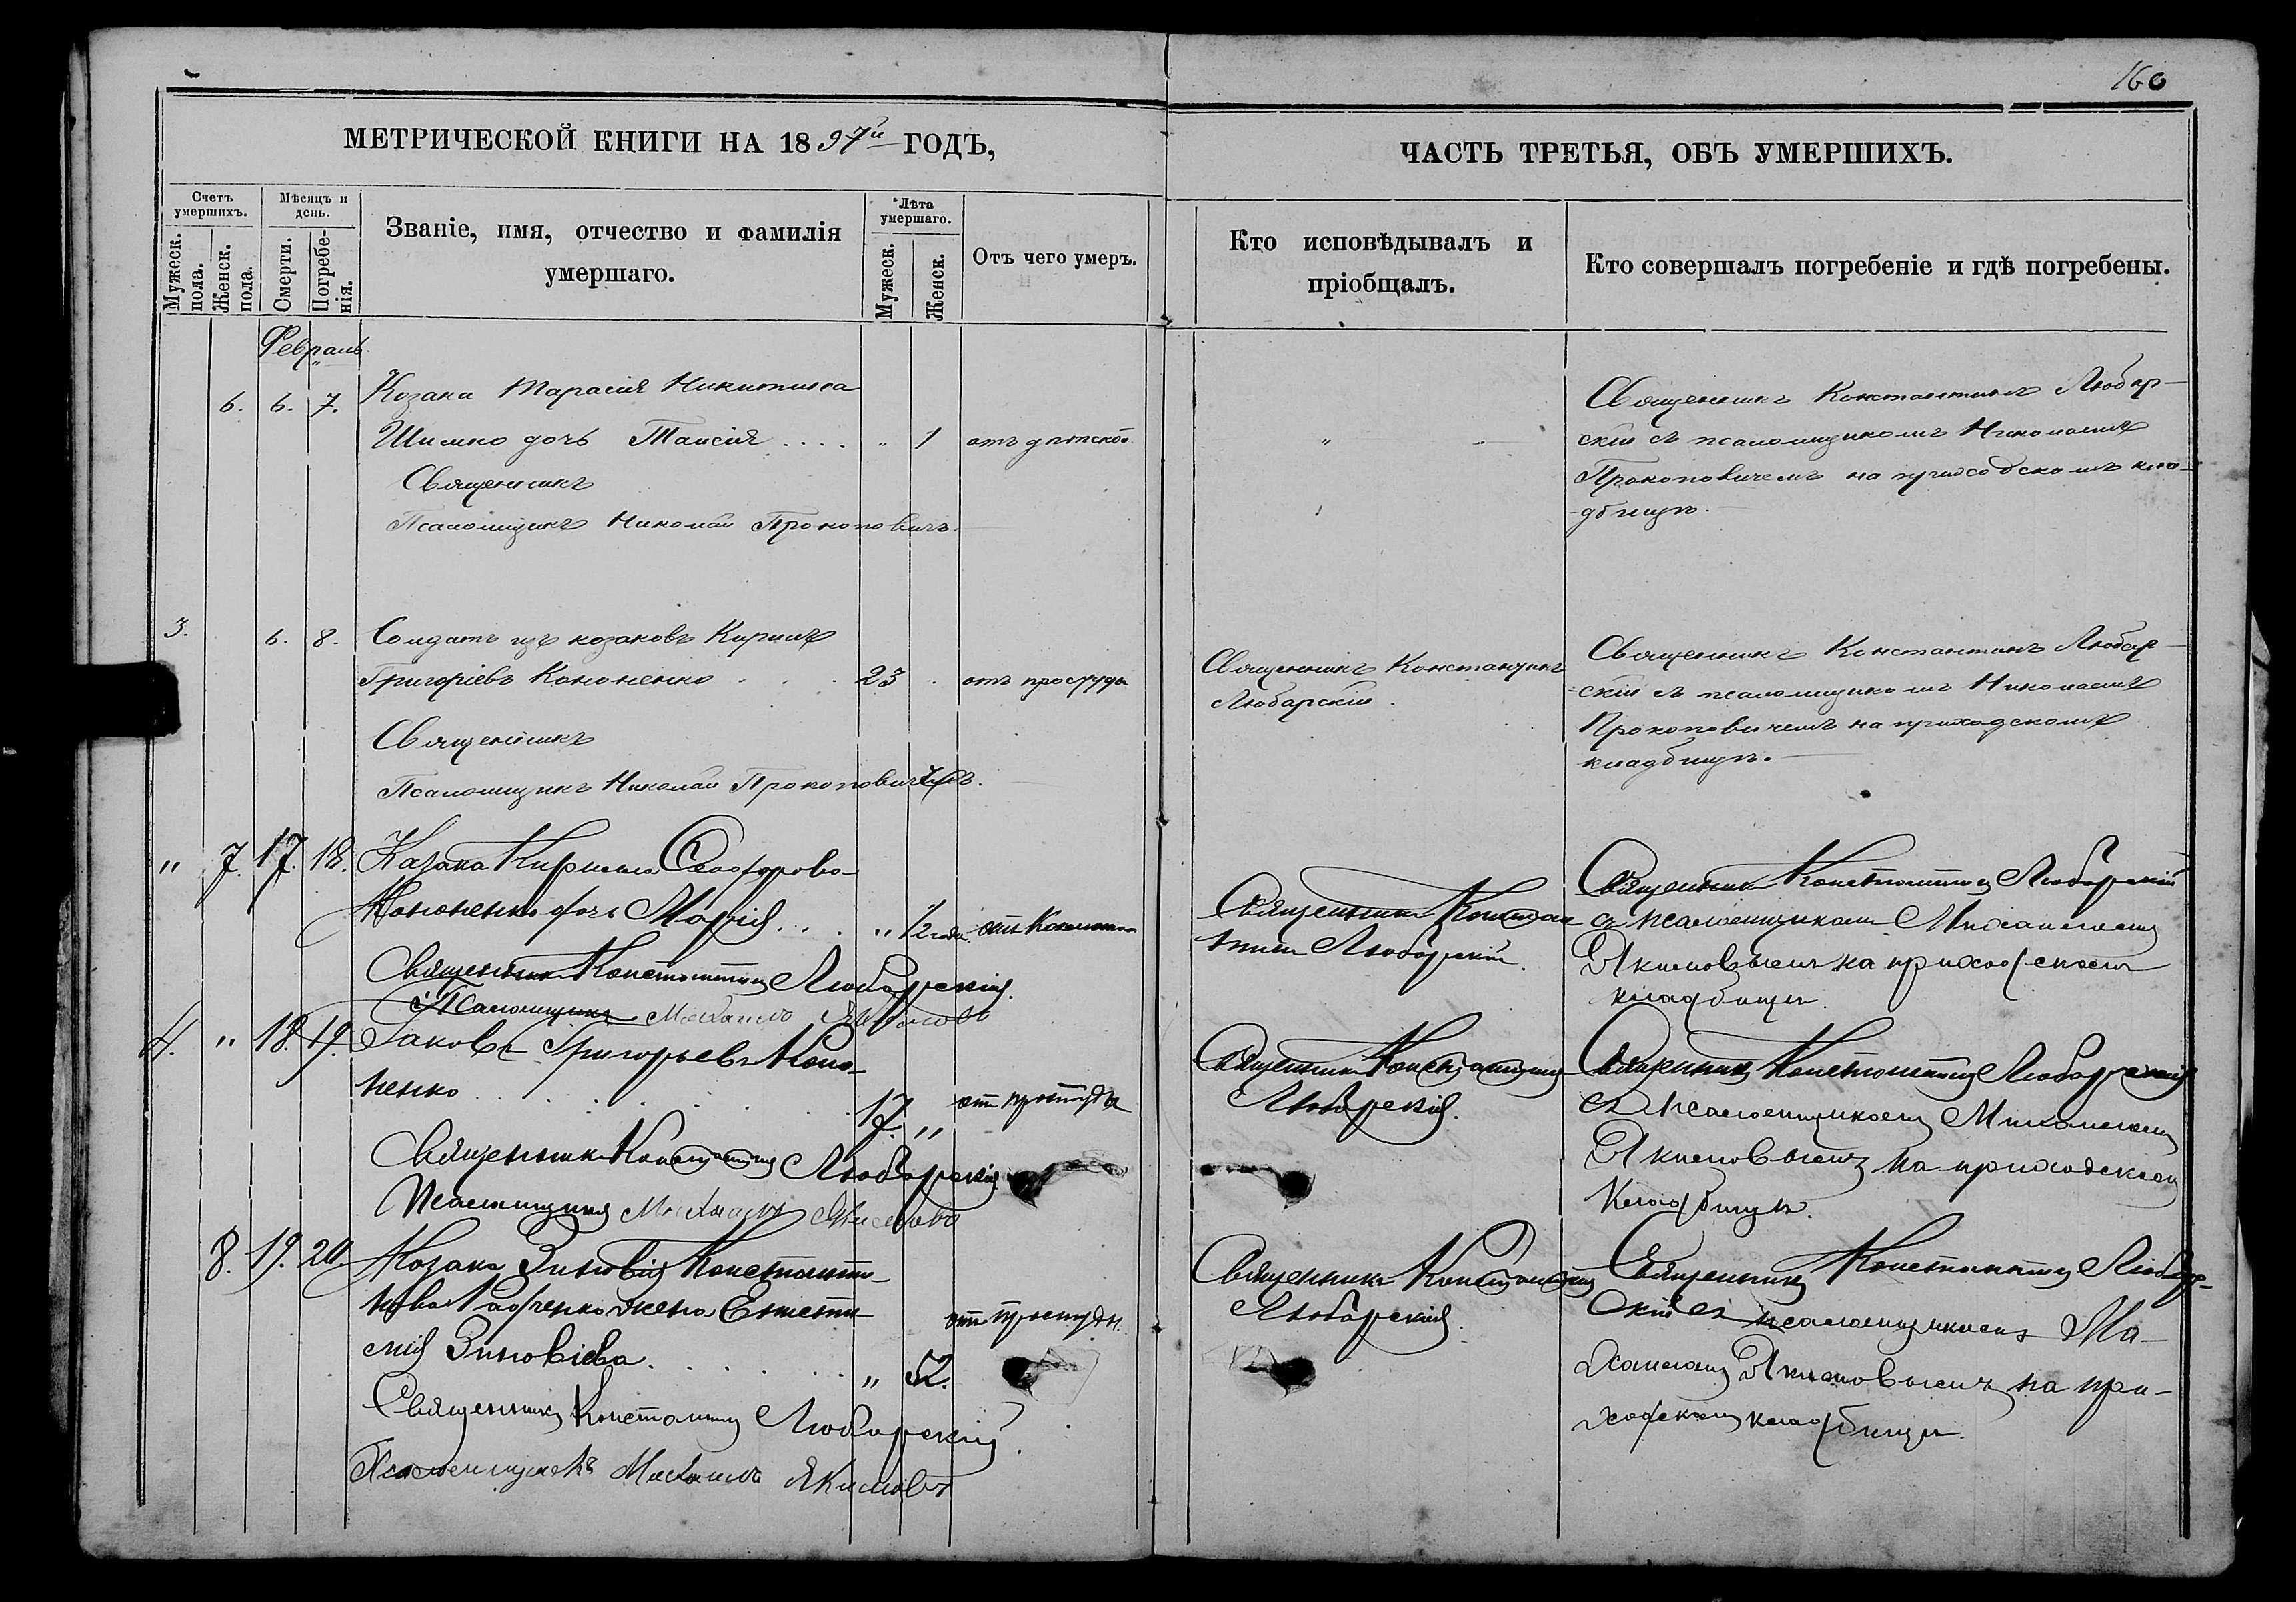 160
МЕТРИЧЕСКОЙ КНИГИ НА 1897й ГОДЪ,
ЧАСТЬ ТРЕТЬЯ, ОБЪ УМЕРШИХЪ.
Счетъ умершихъ.
Мужеск. пола.
Женск. пола.
Мѣсяцъ и день.
Смерти.
Погребенія.
Званіе, имя, отчество и фамилія
умершаго.
Лѣта умершаго.
Мужеск.
Женск.
Отъ чего умеръ.
Кто исповѣдывалъ и
пріобщалъ.
Кто совершалъ погребеніе и гдѣ погребены.
Февраль
6. 6. 7. Козака Тарасія Никитина
Шимко дочь Таисія .... " 1
Священникъ
Псаломщикъ Николай Прокоповичъ.
"
Священникъ Константинъ Любар-
скій съ псаломщикомъ Николаемъ
Прокоповичемъ на приходскомъ кла-
дбищѣ.
3. 6. 8. Солдатъ изъ козаковъ Кириллъ
Григоріевъ Кононенко . . . 23 . отъ простуды
Священникъ
Псаломщикъ Николай Прокоповичъ.
Священникъ Константинъ
Любарскій.
Священникъ Константинъ Любар-
скій съ псаломщикомъ Николаемъ
Прокоповичемъ на приходскомъ
кладбищѣ.
" 7. 17. 18. Козака Кирилла
Кононенко дочь Марія ... " 1/2 года
Священникъ Константинъ Любарскій.
Псаломщикъ Михаилъ Якимовъ
Священникъ Констан
тинъ Любарскій.
Священникъ Константинъ Любарскій
съ псаломщикомъ Михаиломъ
Якимовымъ на приходскомъ
кладбищѣ.
4. " 18. 19. Іаковъ Григорьевъ Коно-
ненко . . . . . . . 17. " отъ простуды
Священникъ Константинъ Любарскій
Псаломщикъ Михаилъ Якимовъ
Священникъ Константинъ
Любарскій.
Священникъ Константинъ Любарскій
съ псаломщикомъ Михаиломъ
Якимовымъ на приходскомъ
кладбищѣ.
8. 19. 20. Козака Зиновія Константи-
нова Радченко жена
Зиновіева. . . . . . " 52. отъ простуды.
Священникъ Константинъ Любарскій.
Псаломщикъ Михаилъ Якимовъ
Священникъ Константинъ
Любарскій.
Священникъ Константинъ Любар-
скій съ псаломщикомъ Ми-
хаиломъ Якимовымъ на при-
ходскомъ кладбищѣ.